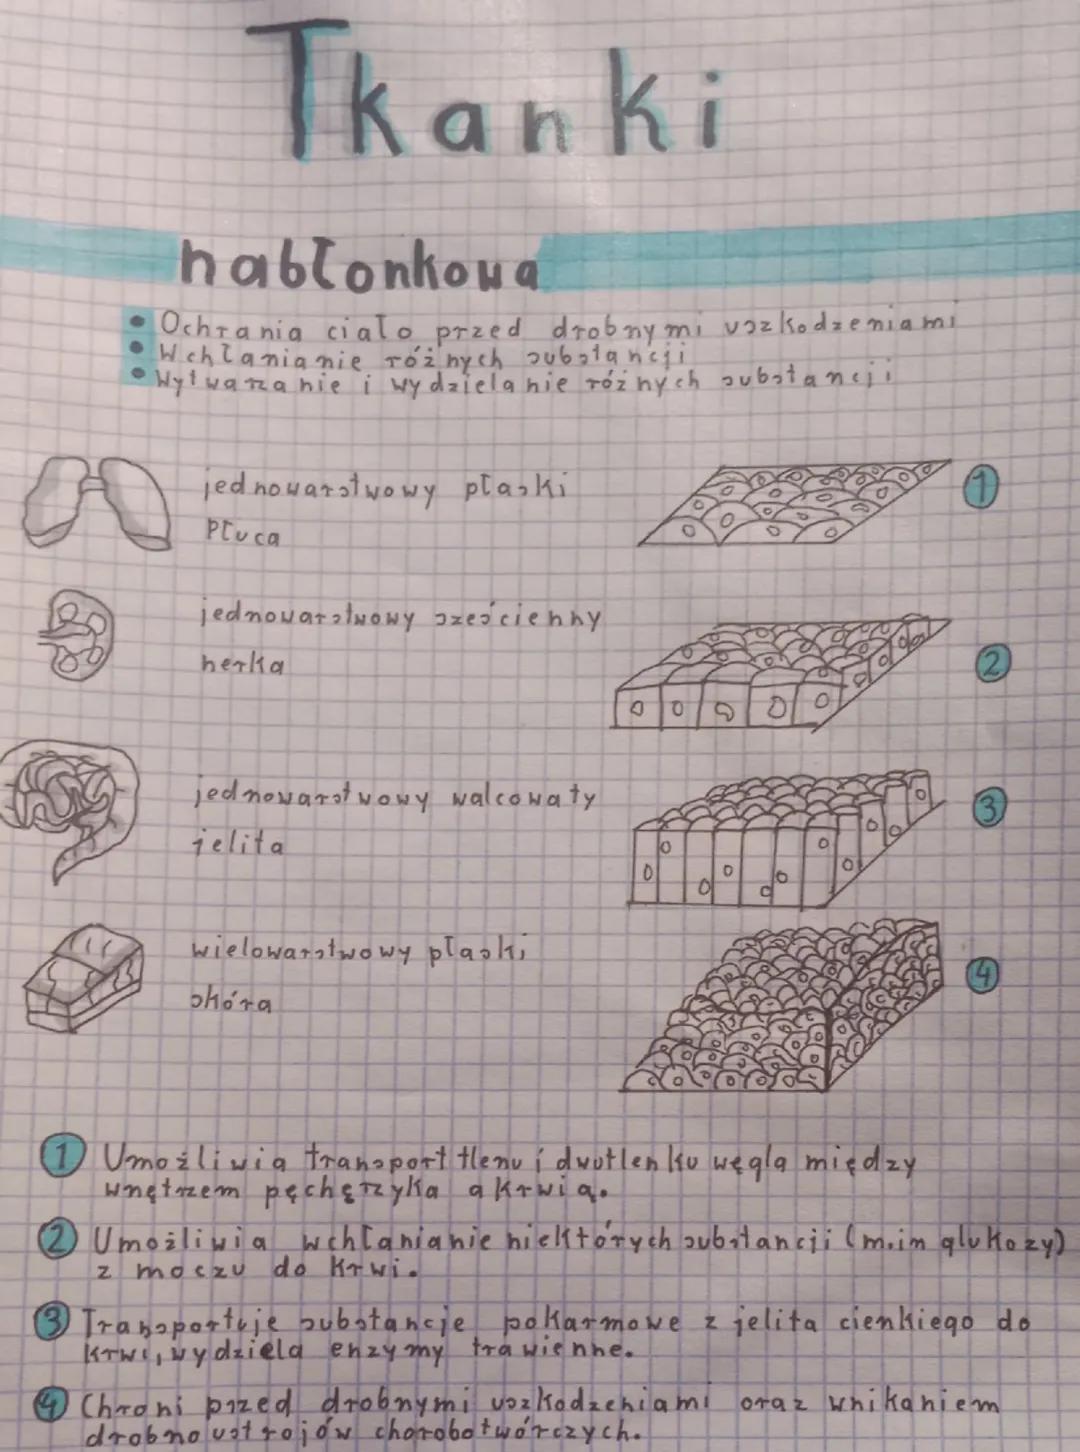 Tkanki
nabłonkowa
• Ochrania ciało przed drobnymi uszkodzeniami
• Wchłanianie różnych substancji
• Wytwarzanie i wydzielanie różnych substancji
jednowarstwowy płaski
1
Płuca
jednowarstwowy sześcienny
2
nerka
jednowarstwowy walcowaty
3
jelita
wielowarstwowy płaski
4
skóra
1 Umożliwia transport tlenu i dwutlenku węgla między
wnętrzem pęcherzyka a krwią.
2 Umożliwia wchłanianie niektórych substancji (m.im glukozy)
z moczu do krwi.
3 Transportuje substancje pokarmowe z jelita cienkiego do
krwi, wydziela enzymy trawienne.
4 Chroni przed drobnymi uszkodzeniami oraz wnikaniem
drobnoustrojów chorobotwórczych.